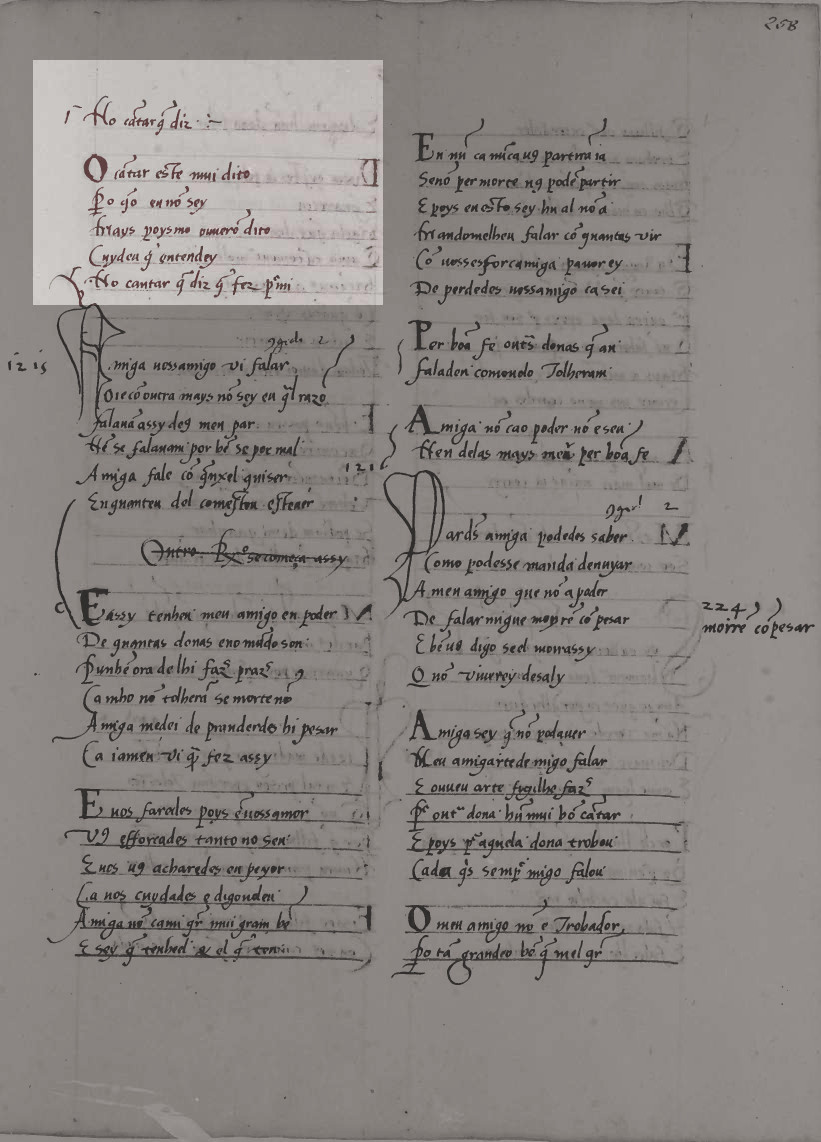 268
No cãtar q̃ diz
O cãtar este mui dito
Po q̃o eu nõ sey
Mays poys mo ouuerõ dito
Cuydey q̃ entendey
No cantar q̃ diz q̃ fez p̃ mi
1215
Amiga uossamigo vi falar
Oie cõ outra mays nõ sey en q̃l razõ
falauã assy de9 meu par
Nẽ se falauam por bẽ se por mal
Amiga fale cõ q̃nxel quiser
Enquanteu del comestou esteuer
Outro Rx° se começa assy
E assy tenheu meu amigo en poder
De quantas donas eno mũdo son
Punhẽ ora de lhi faz̃ praz̃
Ca mho nõ tolherã se morte nõ
Amiga medei de prenderdes hi pesar
Ca iamen vi q̃ fez assy
E uos faredes poys en uossamor
U9 efforçades tanto no seu
E uos u9 acharedes en peyor
Ca uos cuydades e digouolen
Amiga nõ cami q̃r mui gram bẽ
E sey q̃ tenheu el q̃ teni
En mĩ ca nũca u9 partirá ia
Senõ per morte n9 pode partir
E poys en esto sey hu al nõ a
Mandomelheu falar cõ quantas vir
Cõ uossesforçamiga pauorey
De perdedes uossamigo ca sei
Per boa fe outs donas q̃ an
faladen comouolo Tolheram
Amiga nõ cao poder nõ e seu
Nen delas mays meu per boa fe
1216
Par ds̃ amiga podedes saber
Como podesse manda deuuyar
A meu amigo que nõ a poder
De falar migue moyrẽ cõ pesar
224
moirre cõ pesar
E bẽ u9 digo seel morrassy
Q nõ viuerey des aly
Amiga sey q̃ nõ podauer
Meu amigarte de migo falar
E ouueu arte figilhe faz̃
Pr outra dona hũ mui bõ cãtar
E poys pr aquela dona trobou
Cada q̃s sempr migo falou
O meu amigo nõ e Trobador
Po tã grandeo bẽ q̃ mel q̃r